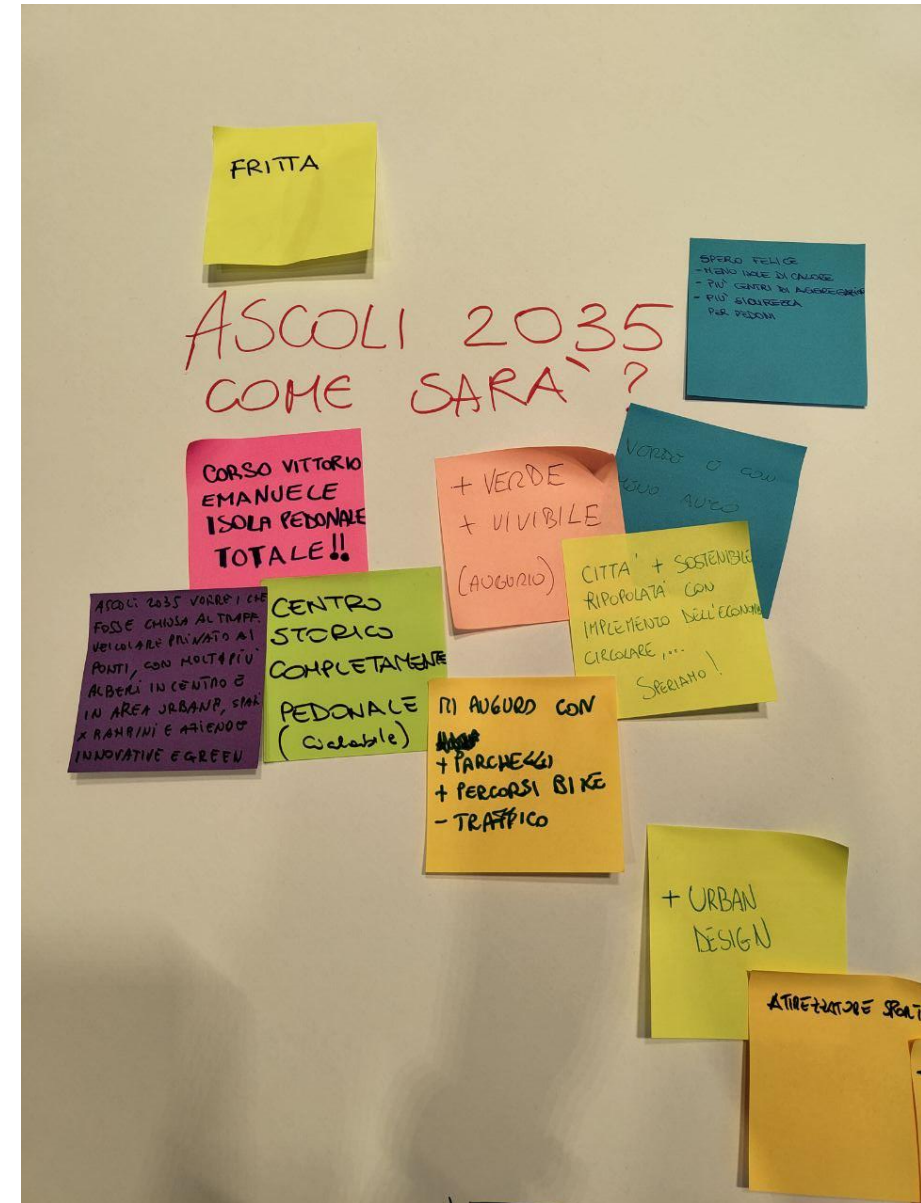 FRITTA
SPERO FELICE
- MENO ISOLE DI CALORE
- PIU' CENTRI DI AGGREGAZIONE
- PIU' SICUREZZA
PER PEDONI
ASCOLI 2035
COME SARA' ?
CORSO VITTORIO
EMANUELE
ISOLA PEDONALE
TOTALE!!
+ VERDE
+ VIVIBILE
(AUGURIO)
VERDE E CON
MENO AUTO
CITTA' + SOSTENIBILE
RIPOPOLATA CON
IMPLEMENTO DELL'ECONOMIA
CIRCOLARE,...
SPERIAMO!
ASCOLI 2035 VORREI CHE
FOSSE CHIUSA AL TRAFF.
VEICOLARE PRIVATO AI
PONTI, CON MOLTI PIU'
ALBERI IN CENTRO E
IN AREA URBANA, SPAZI
X BAMBINI E AZIENDE
INNOVATIVE E GREEN
CENTRO
STORICO
COMPLETAMENTE
PEDONALE
(ciclabile)
MI AUGURO CON
+ PARCHEGGI
+ PERCORSI BIKE
- TRAFFICO
+ URBAN
DESIGN
ATTREZZATURE SPORT